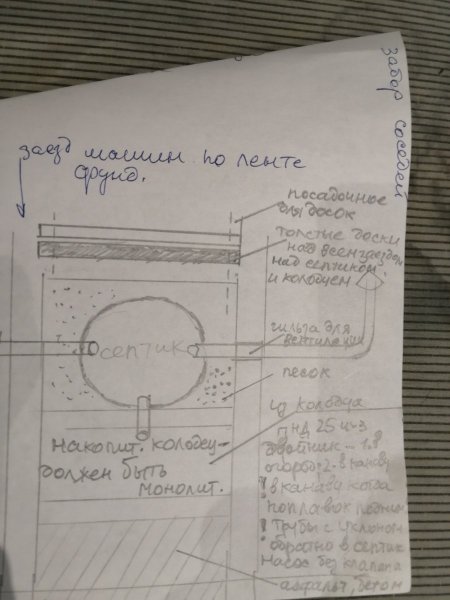 забор соседей
заезд машин по ленте
фунд.
посадочное
для досок
толстые доски
над всем заездом
над септиком
и колодцем
септик
гильза для
вентиляции
песок
из колодца
пнд 25 и-з
накопит. колодец
должен быть
монолит.
тройник
в канаву
! в канаву когда
поплавок
! трубы с уклоном
обратно в септик
насос без клапана
асфальт, бетон